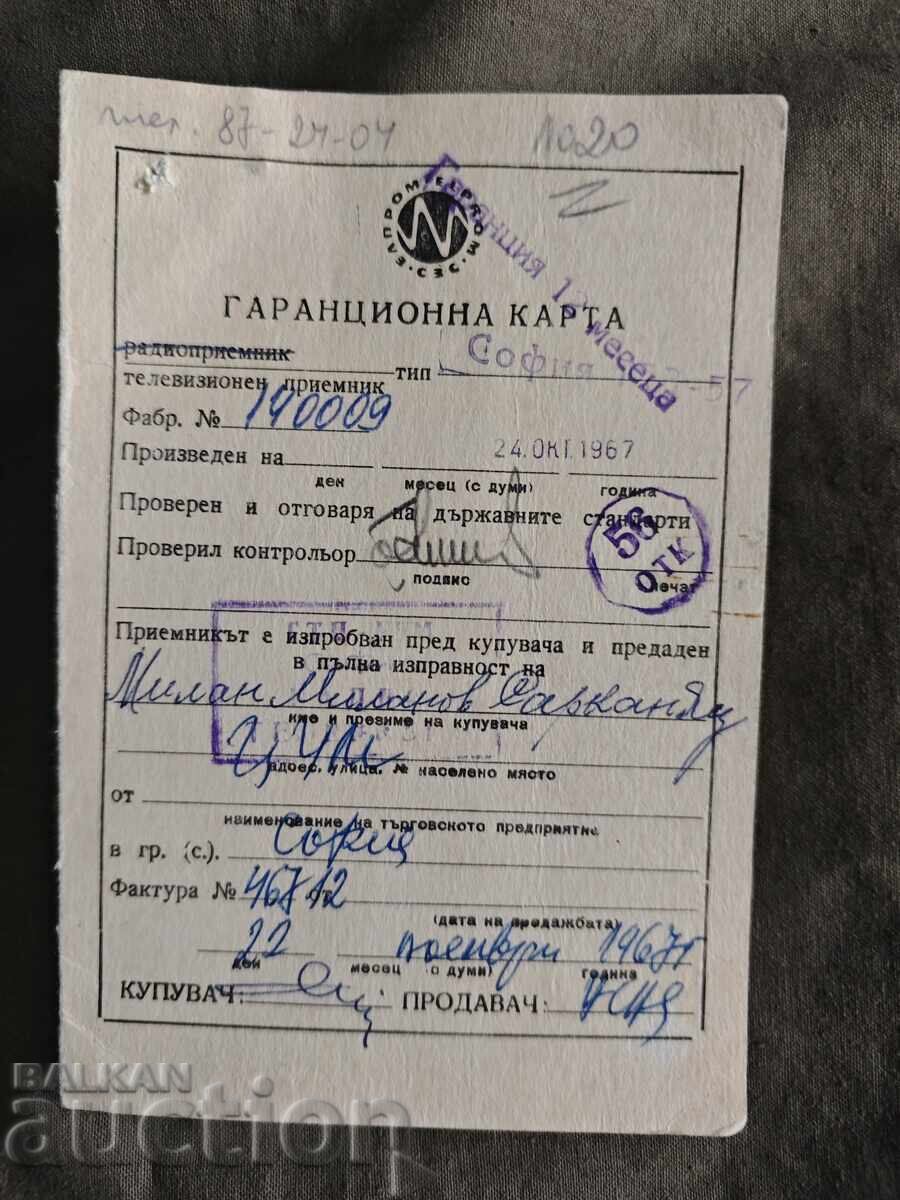 тел. 87-24-04
1020
ЕЛПРОМ ELPROM СЕС
Гаранция 12 месеца
ГАРАНЦИОННА КАРТА
радиоприемник
телевизионен приемник
тип София -57
Фабр. № 140009
Произведен на 24. ОКТ. 1967
ден месец (с думи) година
Проверен и отговаря на държавните стандарти
56
ОТК
Проверил контрольор
подпис печат
Приемникът е изпробван пред купувача и предаден
в пълна изправност на
Милан Миланов
име и презиме на купувача
ЦУМ
адрес. улица. № населено място
от
наименование на търговското предприятие
в гр. (с.). София
Фактура № 46712 от
(дата на продажбата)
22 ноември 1967 г
ден месец (с думи) година
КУПУВАЧ: ПРОДАВАЧ:
BALKAN
auction